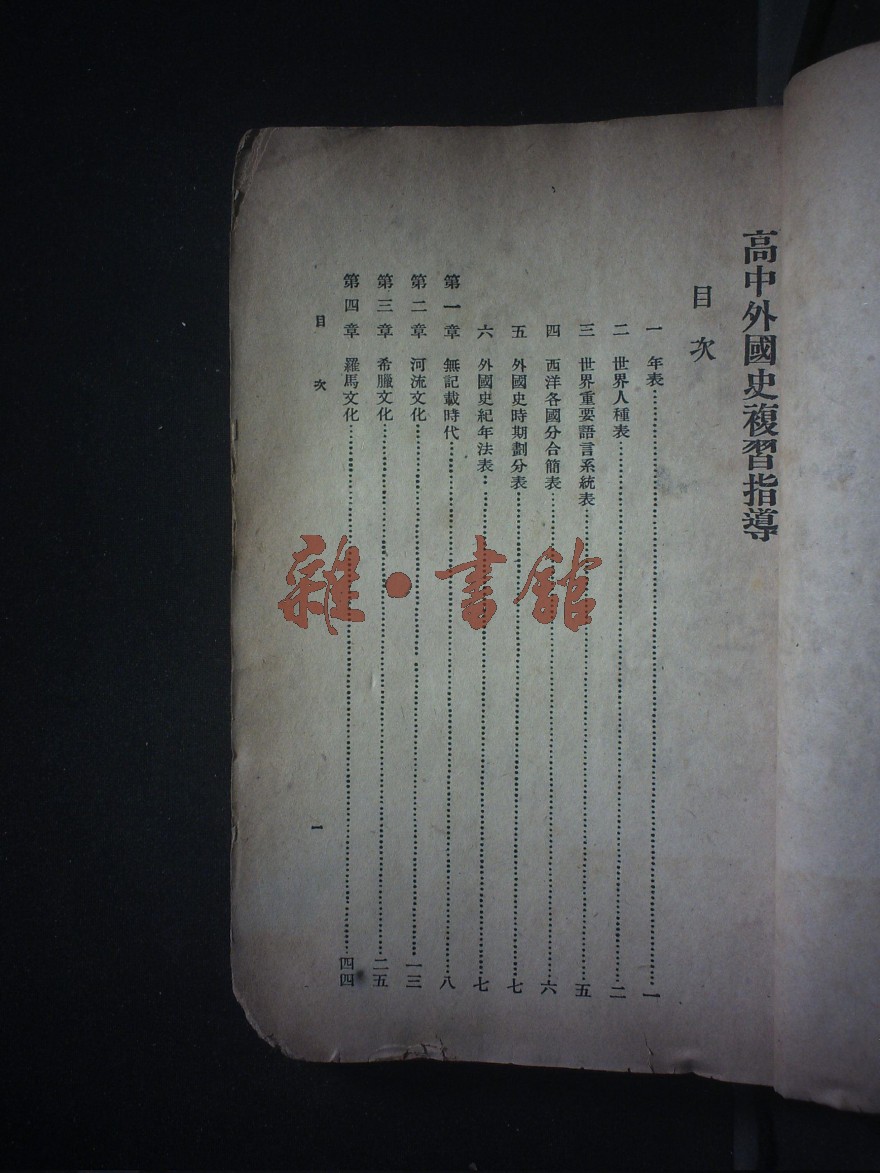 高中外國史複習指導
目次
一 年表……一
二 世界人種表……二
三 世界重要語言系統表……五
四 西洋各國分合簡表……六
五 外國史時期劃分表……七
六 外國史紀年法表……七
第一章 無記載時代……八
第二章 河流文化……一三
第三章 希臘文化……二五
第四章 羅馬文化……四四
目次 一
雜·書館